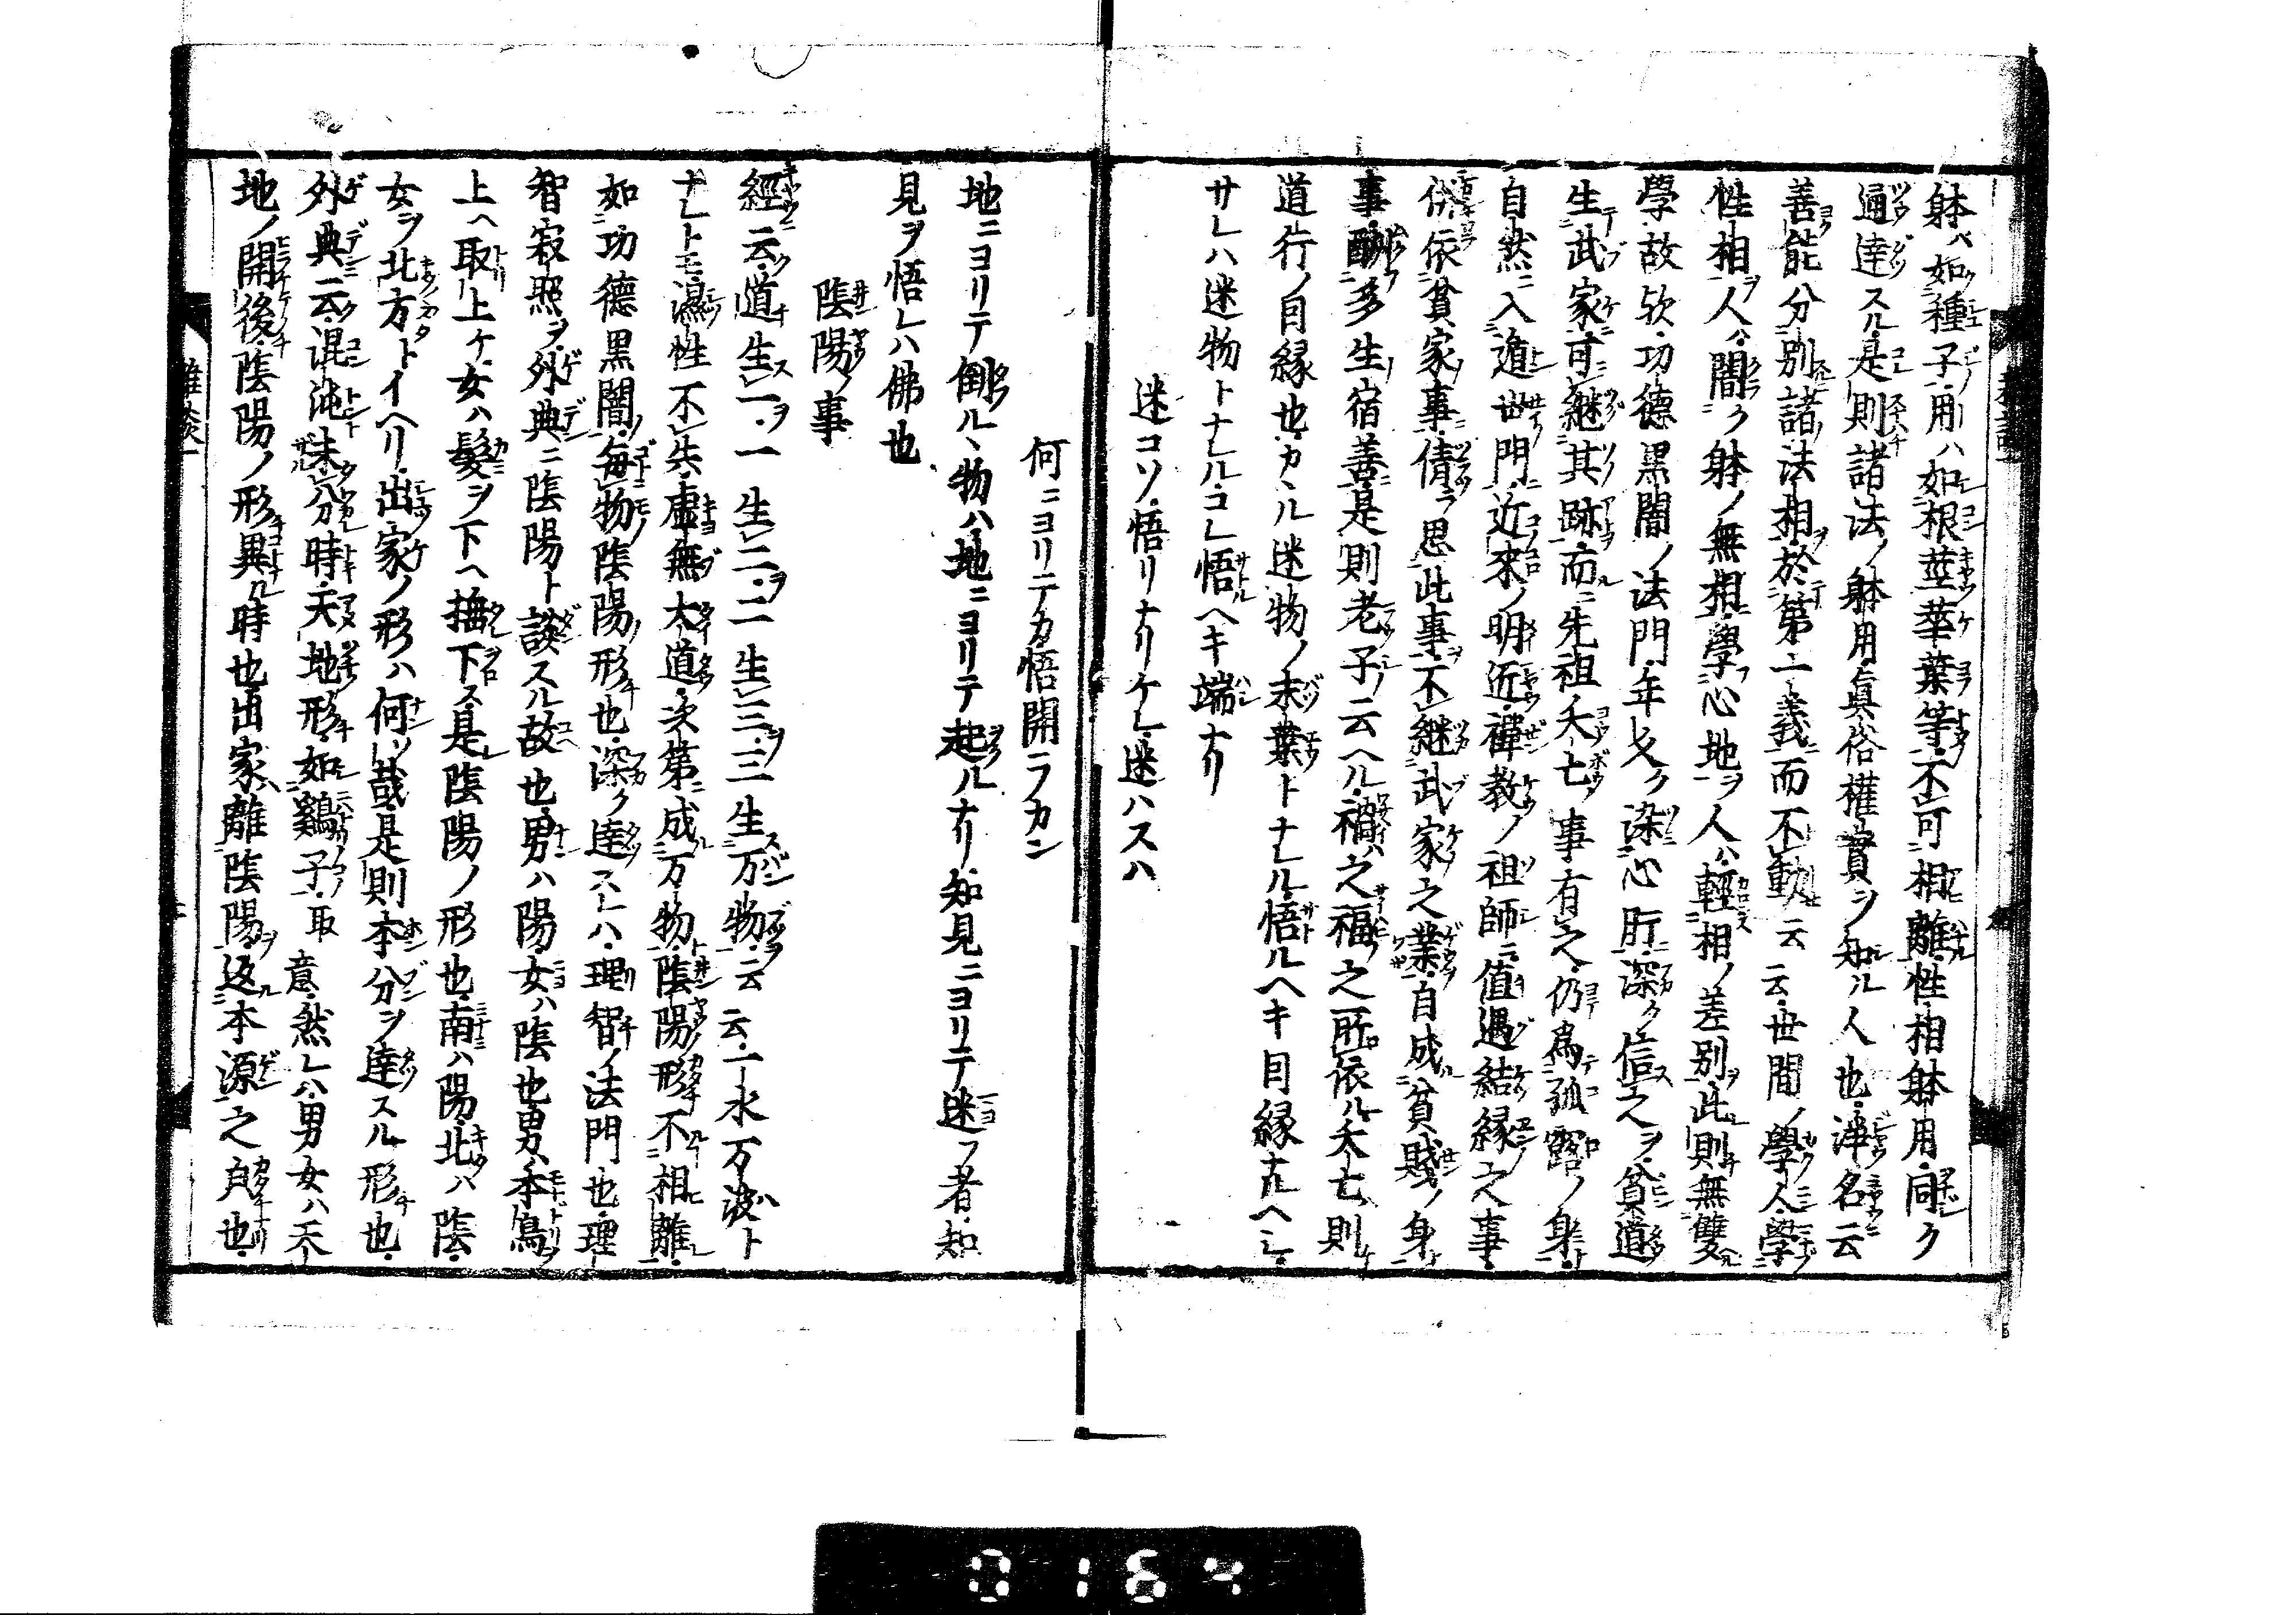 躰ハ如種子用ハ如根莖華葉等不可相離性相躰用同ク
通達スル是則諸法ノ躰用眞俗權實ヲ知ル人也淨名云
善能分別諸法相於第一義而不動云云世間ノ學人學
性相人ハ闇ク躰ノ無相學心地ヲ人ハ輕相ノ差別此則無雙
學故欤功德黒闇ノ法門年久ク染心肝深ク信之ヲ貧道
生武家可継其跡而ニ先祖夭亡事有之仍爲孤露ノ身
自然ニ入遁世門近來ノ明近禪教ノ祖師ニ値遇結縁之事
併依貧家事倩ラ思此事不継武家之業自成貧賤ノ身
事酬多生宿善是則老子ノ云ヘル禍ハ之福ノ之所依ル夭亡則
道行ノ因縁也カヽル迷物ノ末葉トナレル悟ルヘキ因縁ナルヘシ
サレハ迷物トナレルコレ悟ヘキ端ナリ
迷コソ悟リナリケレ迷ハスハ
何ニヨリテカ悟開ラカン
地ニヨリテ倒ルヽ物ハ地ニヨリテ起ルナリ知見ニヨリテ迷フ者知
見ヲ悟レハ佛也
陰陽ノ事
經云道生一一生二二生三三生万物云云一水万波ト
ナレトモ濕性不失虚無大道次第成万物陰陽形不相離
如功德黒闇毎物陰陽ノ形也深ク達スレハ理智ノ法門也理
智寂照ヲ外典ニ陰陽ト談スル故也男ハ陽女ハ陰也男ハ本鳥
上ヘ取上ケ女ハ髪ヲ下ヘ撫下ス是陰陽ノ形也南ハ陽北ハ陰
女ヲ北方トイヘリ出家ノ形ハ何ソ哉是則本分ヲ達スル形也
外典云混沌未分時天地形如鷄子取意然レハ男女ハ天
地ノ開後陰陽ノ形異ル時也出家離陰陽返本源之皃也
雜談一